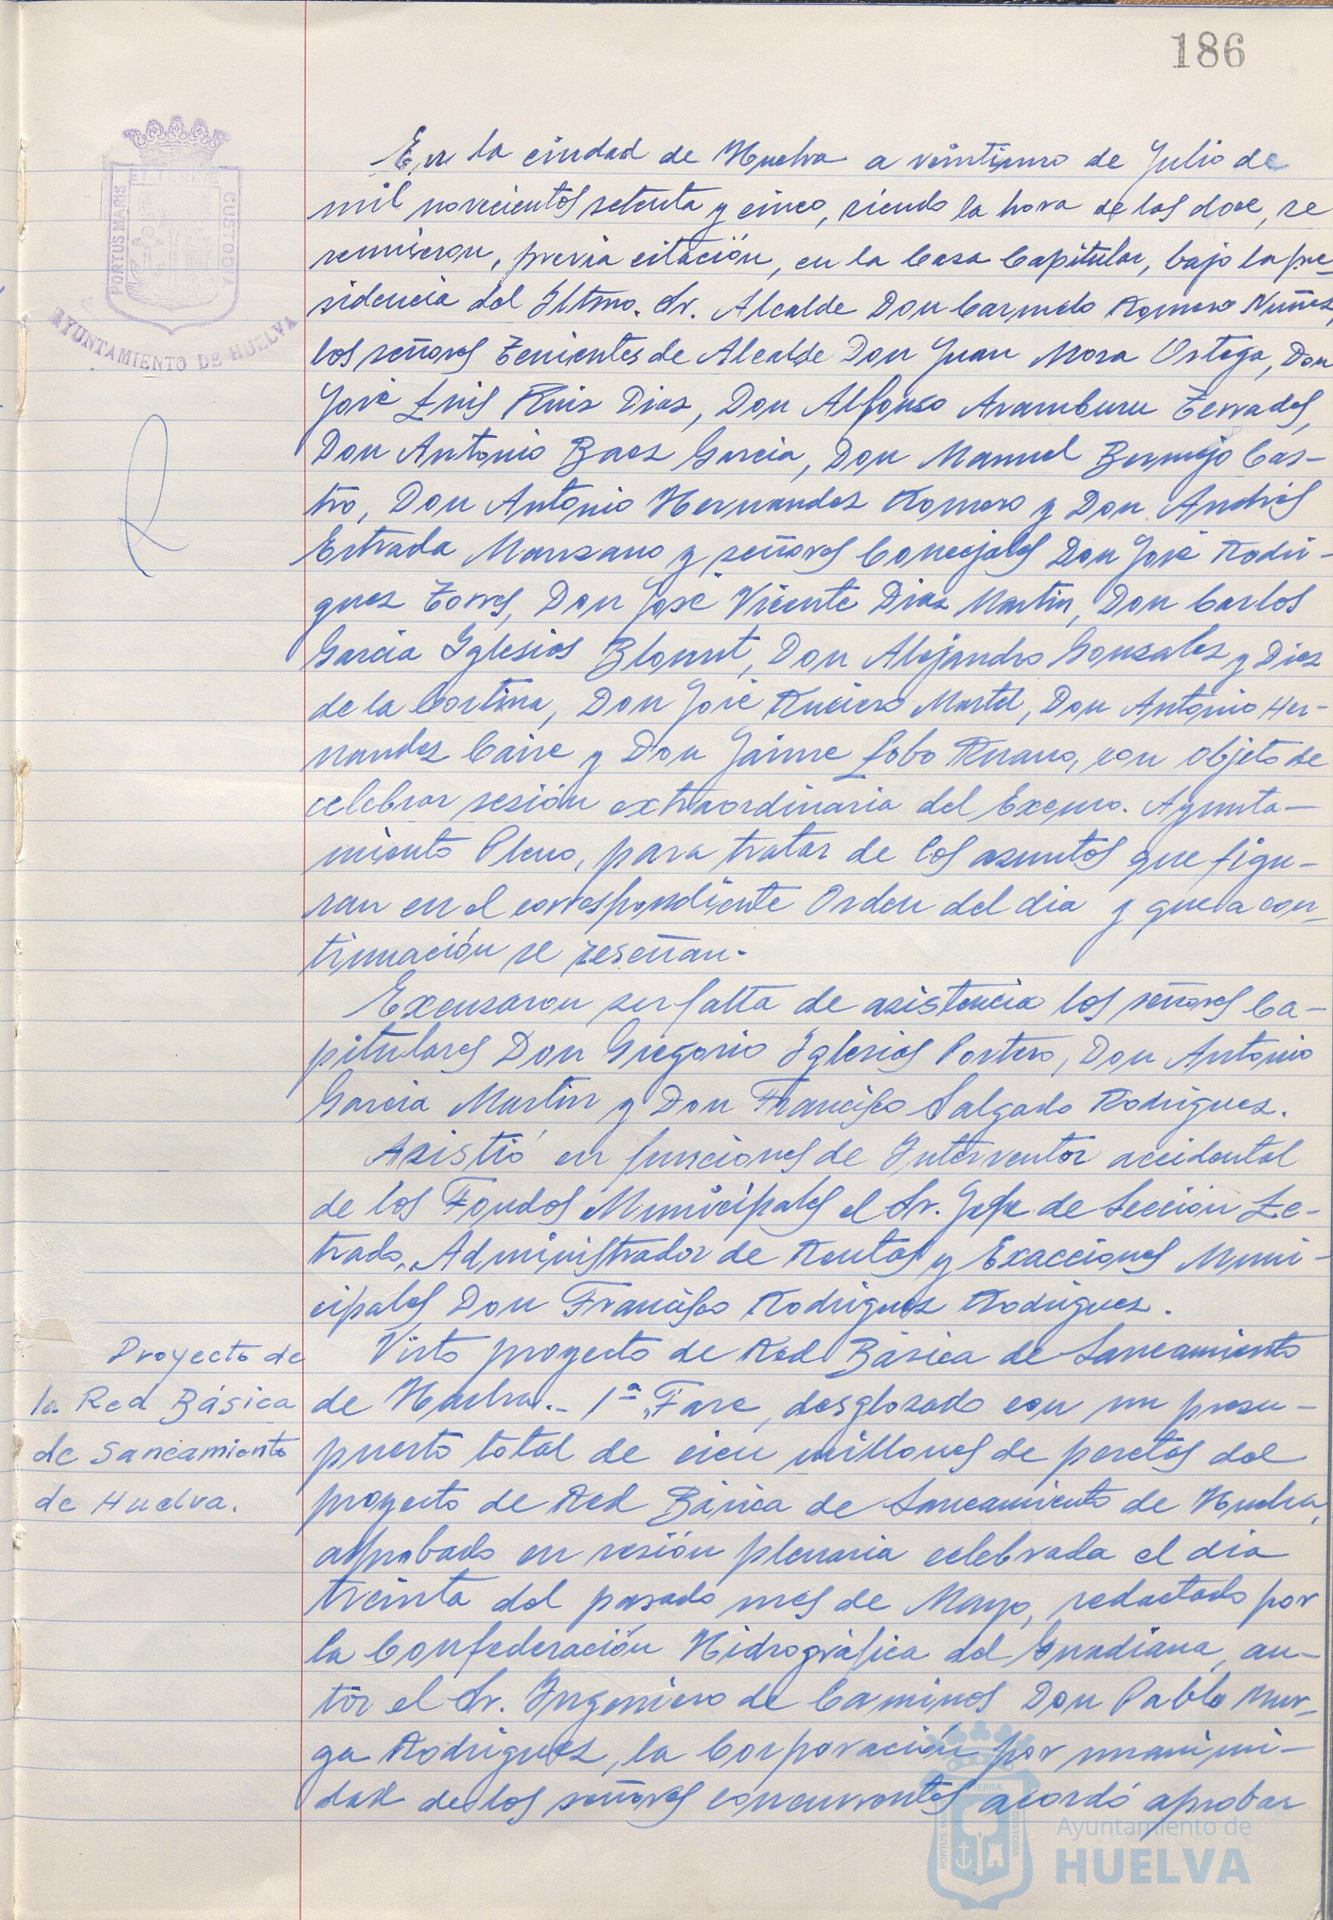 186
ET TERRÆ
PORTUS MARIS
CUSTODIA
AYUNTAMIENTO DE HUELVA
En la ciudad de Huelva a veintiuno de Julio de
mil novecientos setenta y cinco, siendo la hora de las doce, se
reunieron, previa citación, en la Casa Capitular, bajo la pre-
sidencia del Iltmo. Sr. Alcalde Don Carmelo Romero Nuñez,
los señores Tenientes de Alcalde Don Juan Mora Ortega, Don
José Luis Ruiz Diaz, Don Alfonso Aramburu Terrades,
Don Antonio Baez Garcia, Don Manuel Bermejo Cas-
tro, Don Antonio Hernandez Romero y Don Andrés
Estrada Manzano y señores Concejales Don José Rodri-
guez Torres, Don José Vicente Diaz Martin, Don Carlos
Garcia Iglesias Blomut, Don Alejandro Gonzalez y Diez
de la Cortina, Don José Ruciero Martel, Don Antonio Her-
nandez Caire y Don Jaime Lobo Ruano, con objeto de
celebrar sesión extraordinaria del Excmo. Ayunta-
miento Pleno, para tratar de los asuntos que figu-
ran en el correspondiente Orden del dia y que a con-
tinuación se reseñan.
Excusaron su falta de asistencia los señores Ca-
pitulares Don Gregorio Iglesias Portero, Don Antonio
Garcia Martin y Don Francisco Salgado Rodriguez.
Asistió en funciones de Interventor accidental
de los Fondos Municipales el Sr. Jefe de Sección Le-
trado, Administrador de Rentas y Exacciones Muni-
cipales, Don Francisco Rodriguez Rodriguez.
Proyecto de
la Red Básica
de Saneamiento
de Huelva.
Visto proyecto de Red Básica de Saneamiento
de Huelva.- 1ª Fase, desglosado con un presu-
puesto total de cien millones de pesetas del
proyecto de Red Básica de Saneamiento de Huelva,
aprobado en sesión plenaria celebrada el dia
treinta del pasado mes de Mayo, redactado por
la Confederación Hidrográfica del Guadiana, au-
tor el Sr. Ingeniero de Caminos Don Pablo Mur-
ga Rodriguez, la Corporación por unanimi-
dad de los señores concurrentes acordó aprobar
Ayuntamiento de
HUELVA